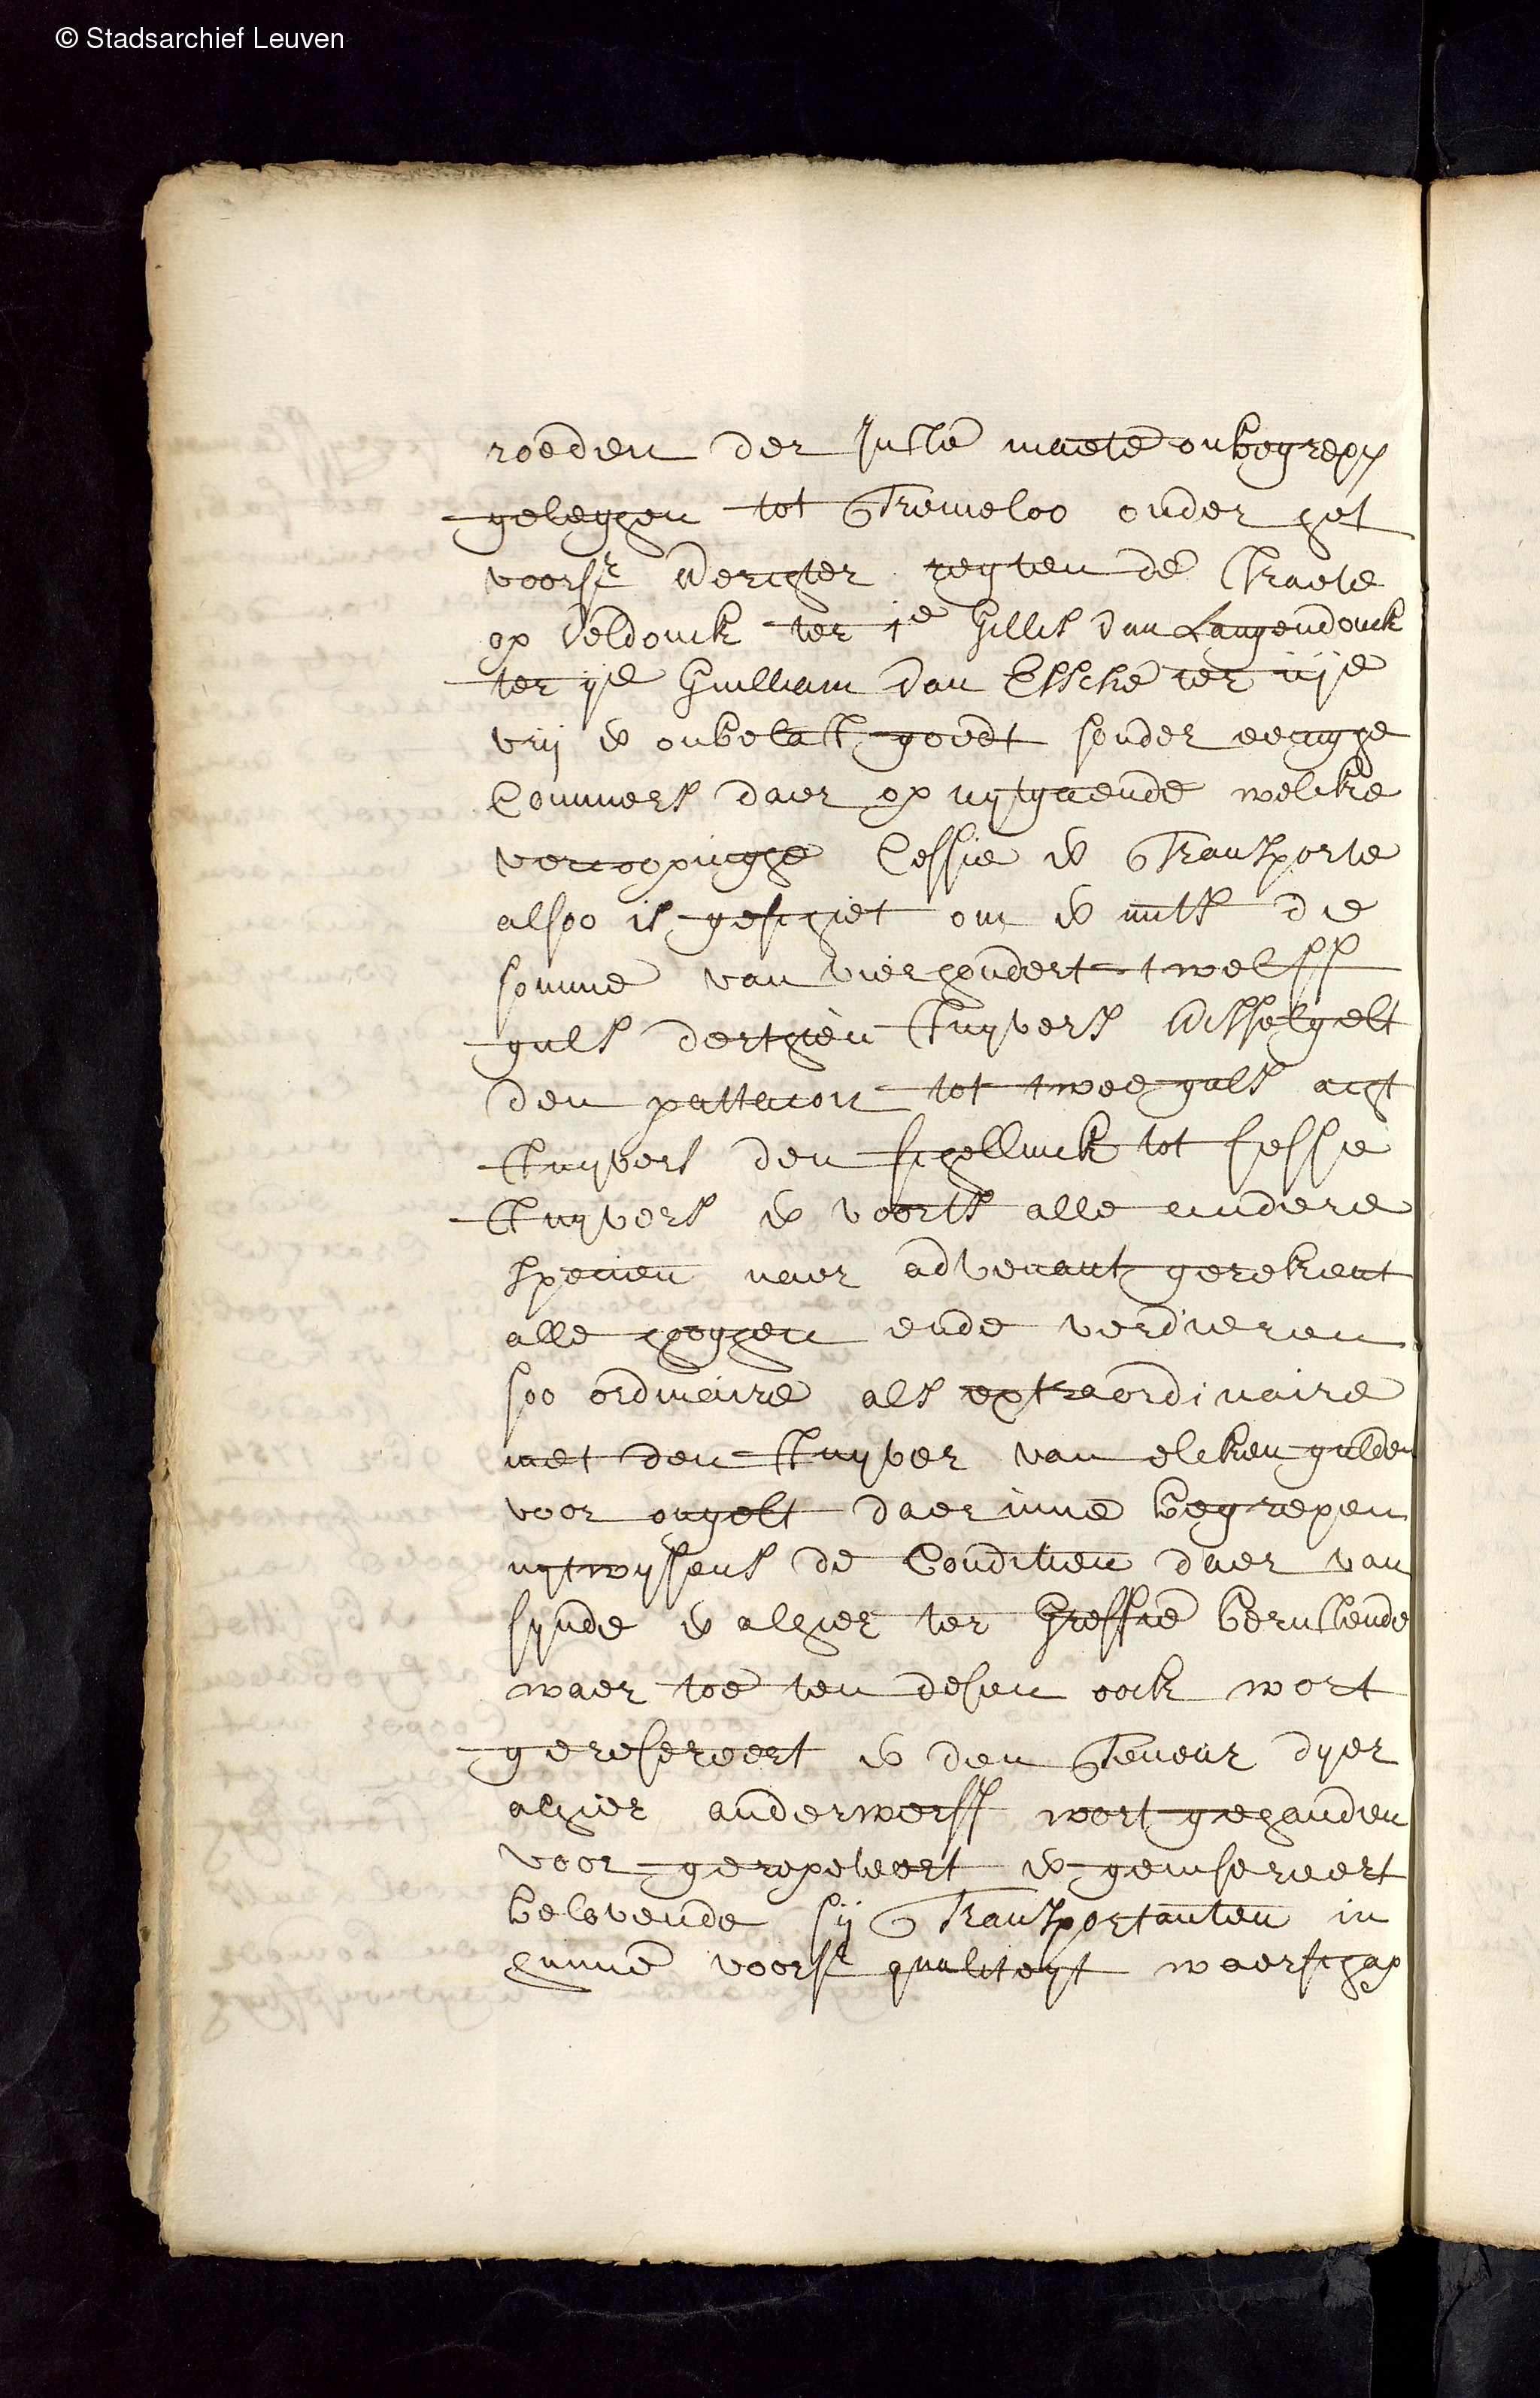 © Stadsarchief Leuven
roeden der juste maete onbegrepen
geleghen tot Tremeloo onder het
voorsr Werchter reghen de straete
op Veldonck ter 1e Gillis van Langendonck
ter ije Guilliam van Essche ter iije
vrij & onbelast goedt sonder eenighe
Commers daer op uytgaende welcke
vercoopinghe Cessie & Transporte
alsoo is geschiet om & mits die
somme van vierhondert twelff
guls derthien stuyvers Wisselgelt
den pattacon tot twee guls acht
stuyvers den schellinck tot sesse
stuyvers & voorts alle andere
specien naer advenant gerekent
alle hooghen ende verdieren
soo ordinaire als extraordinaire
met den stuyver van elcken gulden
voor ongelt daer inne begrepen
uytwysens de Conditien daer van
synde & alhier ter Greffie berustende
waer toe ten desen oock wort
gerefereert & den Teneur dyer
alhier anderwerff wort gehauden
voor gerepeteert & geinsereert
belovende sij Transportanten in
hunne voorsr qualiteyt waerschap